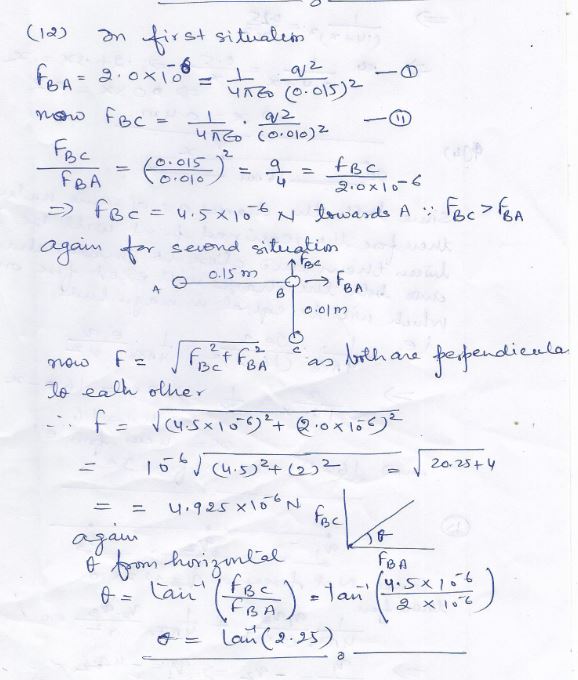 (12) In first situation
F_BA = 2.0×10^-6 = 1/4πε0 q^2/(0.015)^2 — ①
now F_BC = 1/4πε0 . q^2/(0.010)^2 — ⑪
F_BC/F_BA = (0.015/0.010)^2 = 9/4 = F_BC/2.0×10^-6
⇒ F_BC = 4.5×10^-6 N towards A ∵ F_BC > F_BA
again for second situation
F_BC
A 0.15m B F_BA
0.01m
C
now F = √F_BC^2 + F_BA^2 as both are perpendicula
to eath other
∴ F = √(4.5×10^-6)^2 + (2.0×10^-6)^2
= 10^-6 √(4.5)^2 + (2)^2 = √20.25+4
= = 4.925×10^-6 N
F_BC θ
F_BA
again
θ from horizontal
θ = tan^-1 (F_BC/F_BA) = tan^-1 (4.5×10^-6/2×10^-6)
θ = tan^-1(2.25)